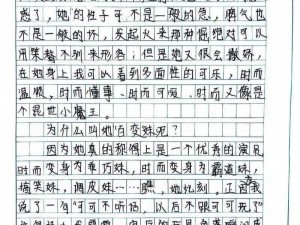 惑了，她的性子可不是一般的急，脾气也
不是一般的坏，发起火来那种倔绝对可以
用桀骜不驯来形容；但是她又很会撒娇，
在她身上我可以看到多面性的可乐，时而
温顺，时而懂事、时而可爱、时而又像是
个混世小魔王。
为什么叫她“百变妹儿”？
因为她真的称得上是一个优秀的演员，
时而变身为乖巧妹，时而变身为霸道妹，
搞笑妹，调皮妹……瞧，她忆刻，正因我
说了一句“可可不听话，以后不跟可可玩了”